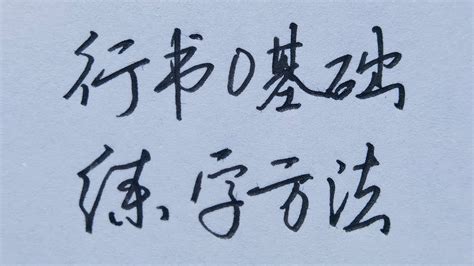 行书0基础
练字方法